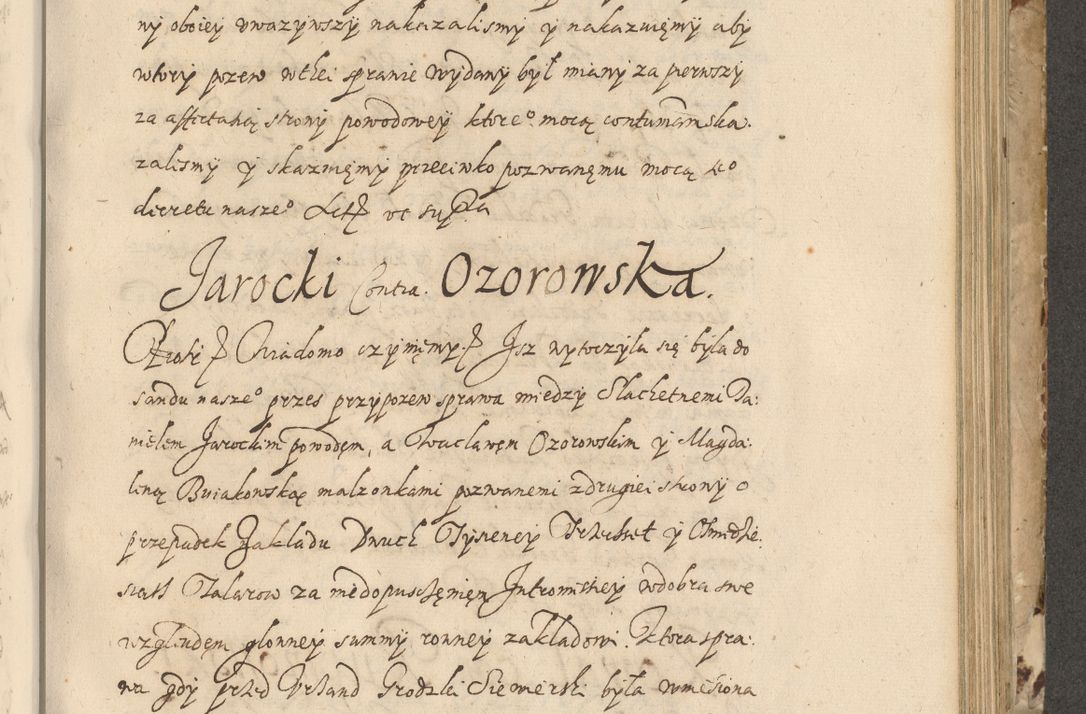 ny oboiey vwazywszy nakazalismy y nakazuięmy aby
wtory pozew wthei sprawie wydany był miany za pierwszy
za affectatią strony powodowey ktore° mocą contumam ska.
zalismy y skazuięmy przeciwko pozwanęmu mocą te°
decretu nasze° Let vt supra
Jarocki Contra. Ozorowska.
Wiadomo czynięmy. Jsz wytoczyla się byla do
sandu nasze° przes przypozew sprawa miedzy Slachetnemi Da:
nielem Jarockim powodęm, a Waclawęm Ozorowskim y Magda:
leną Buiakowską malzonkami pozwanemi zdrugiei strony o
przepadek Zakladu Dwuch Tysiency Trzechset y Osmdzie:
siath Talarow za niedopusczęnięm Intromissiey wdobra swe
wzgludęm glowney summy rowney zakladowi. Ktora spra:
wa gdy przed Vrząnd Grodzki Siewierski była wniesiona